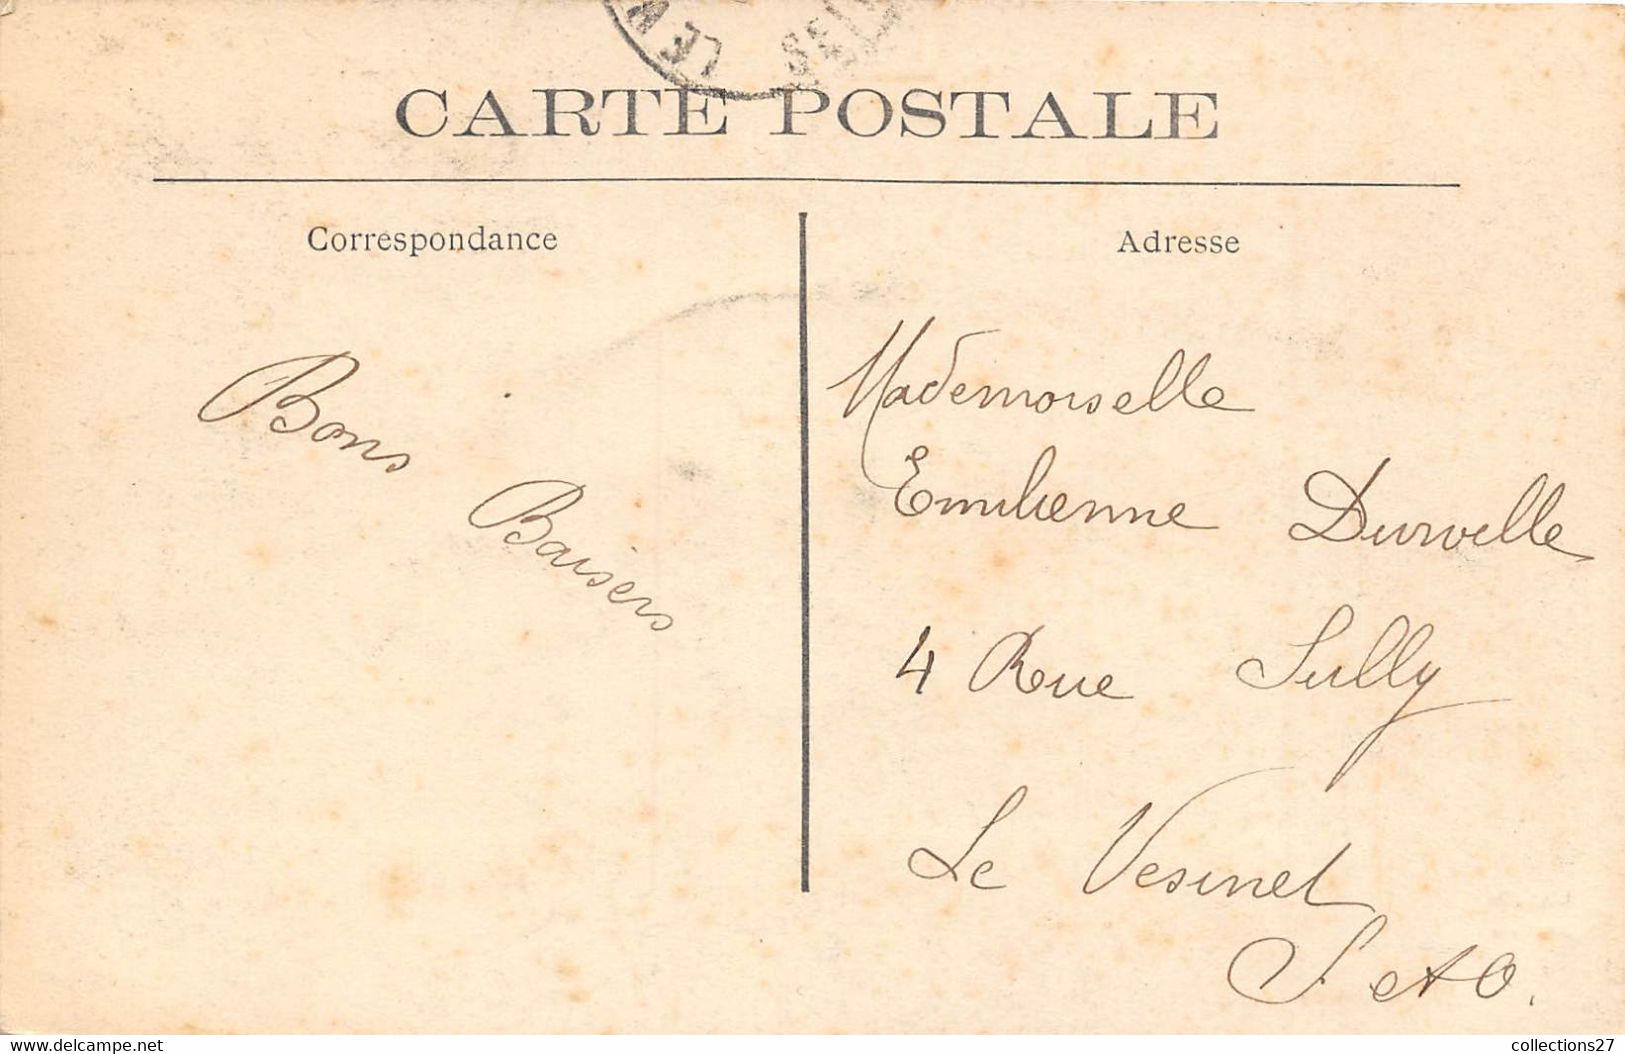 CARTE POSTALE
Correspondance
Bons Baisers
Adresse
Mademoiselle
Emilienne Durvelle
4 Rue Sully
Le Vesinet
S et O.
delcampe.net
collections27